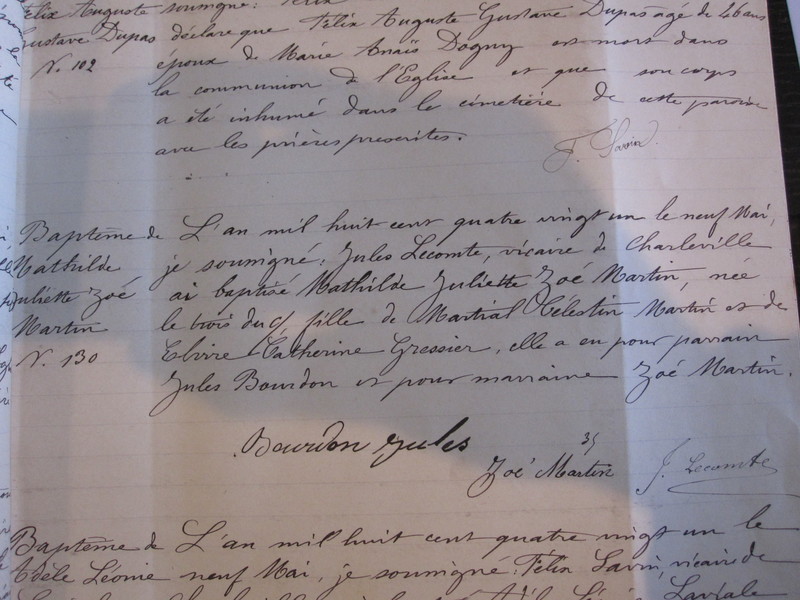 Félix Auguste soussigné:
Gustave Dupas déclare que Félix Auguste Gustave Dupas âgé de 46 ans
N. 102 époux de Marie Anaïs Dogny est mort dans
la communion de l'Église et que son corps
a été inhumé dans le cimetière de cette paroisse
avec les prières prescrites.
F. Savin
Baptême de L'an mil huit cent quatre vingt un le neuf Mai,
Mathilde je soussigné: Jules Lecomte, vicaire de Charleville
Juliette Zoé ai baptisé Mathilde Juliette Zoé Martin, née
Martin le trois du c/ fille de Martial Célestin Martin et de
N. 130 Elvire Catherine Gressier, elle a eu pour parrain
Jules Bourdon et pour marraine Zoé Martin.
Bourdon Jules
35
Zoé Martin J. Lecomte
Baptême de L'an mil huit cent quatre vingt un le
Adèle Léonie neuf Mai, je soussigné: Félix Savin, vicaire de